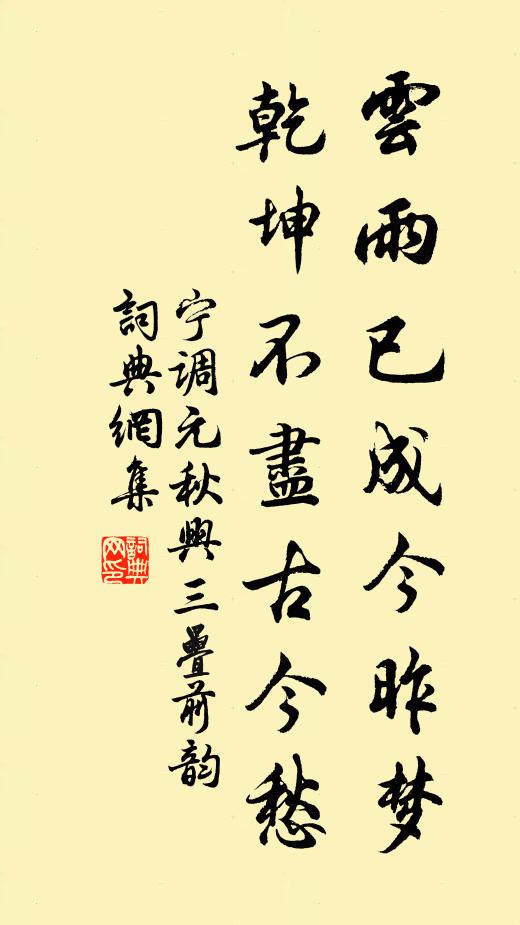 雲雨已成今昨梦
乾坤不盡古今愁
宁调元秋興三疊前韵
詞典網集
詞典网印